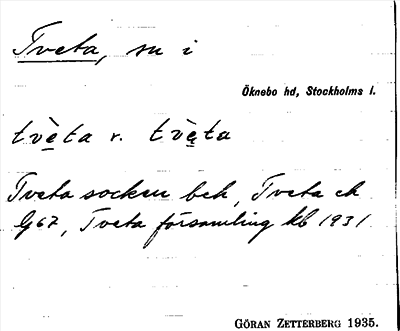 Tveta, sn i
Öknebo hd, Stockholms l.
tvè̱ta r. tvè̱ta
Tveta socken bek, Tveta ek
G67, Tveta församling kb 1931
GÖRAN ZETTERBERG 1935.